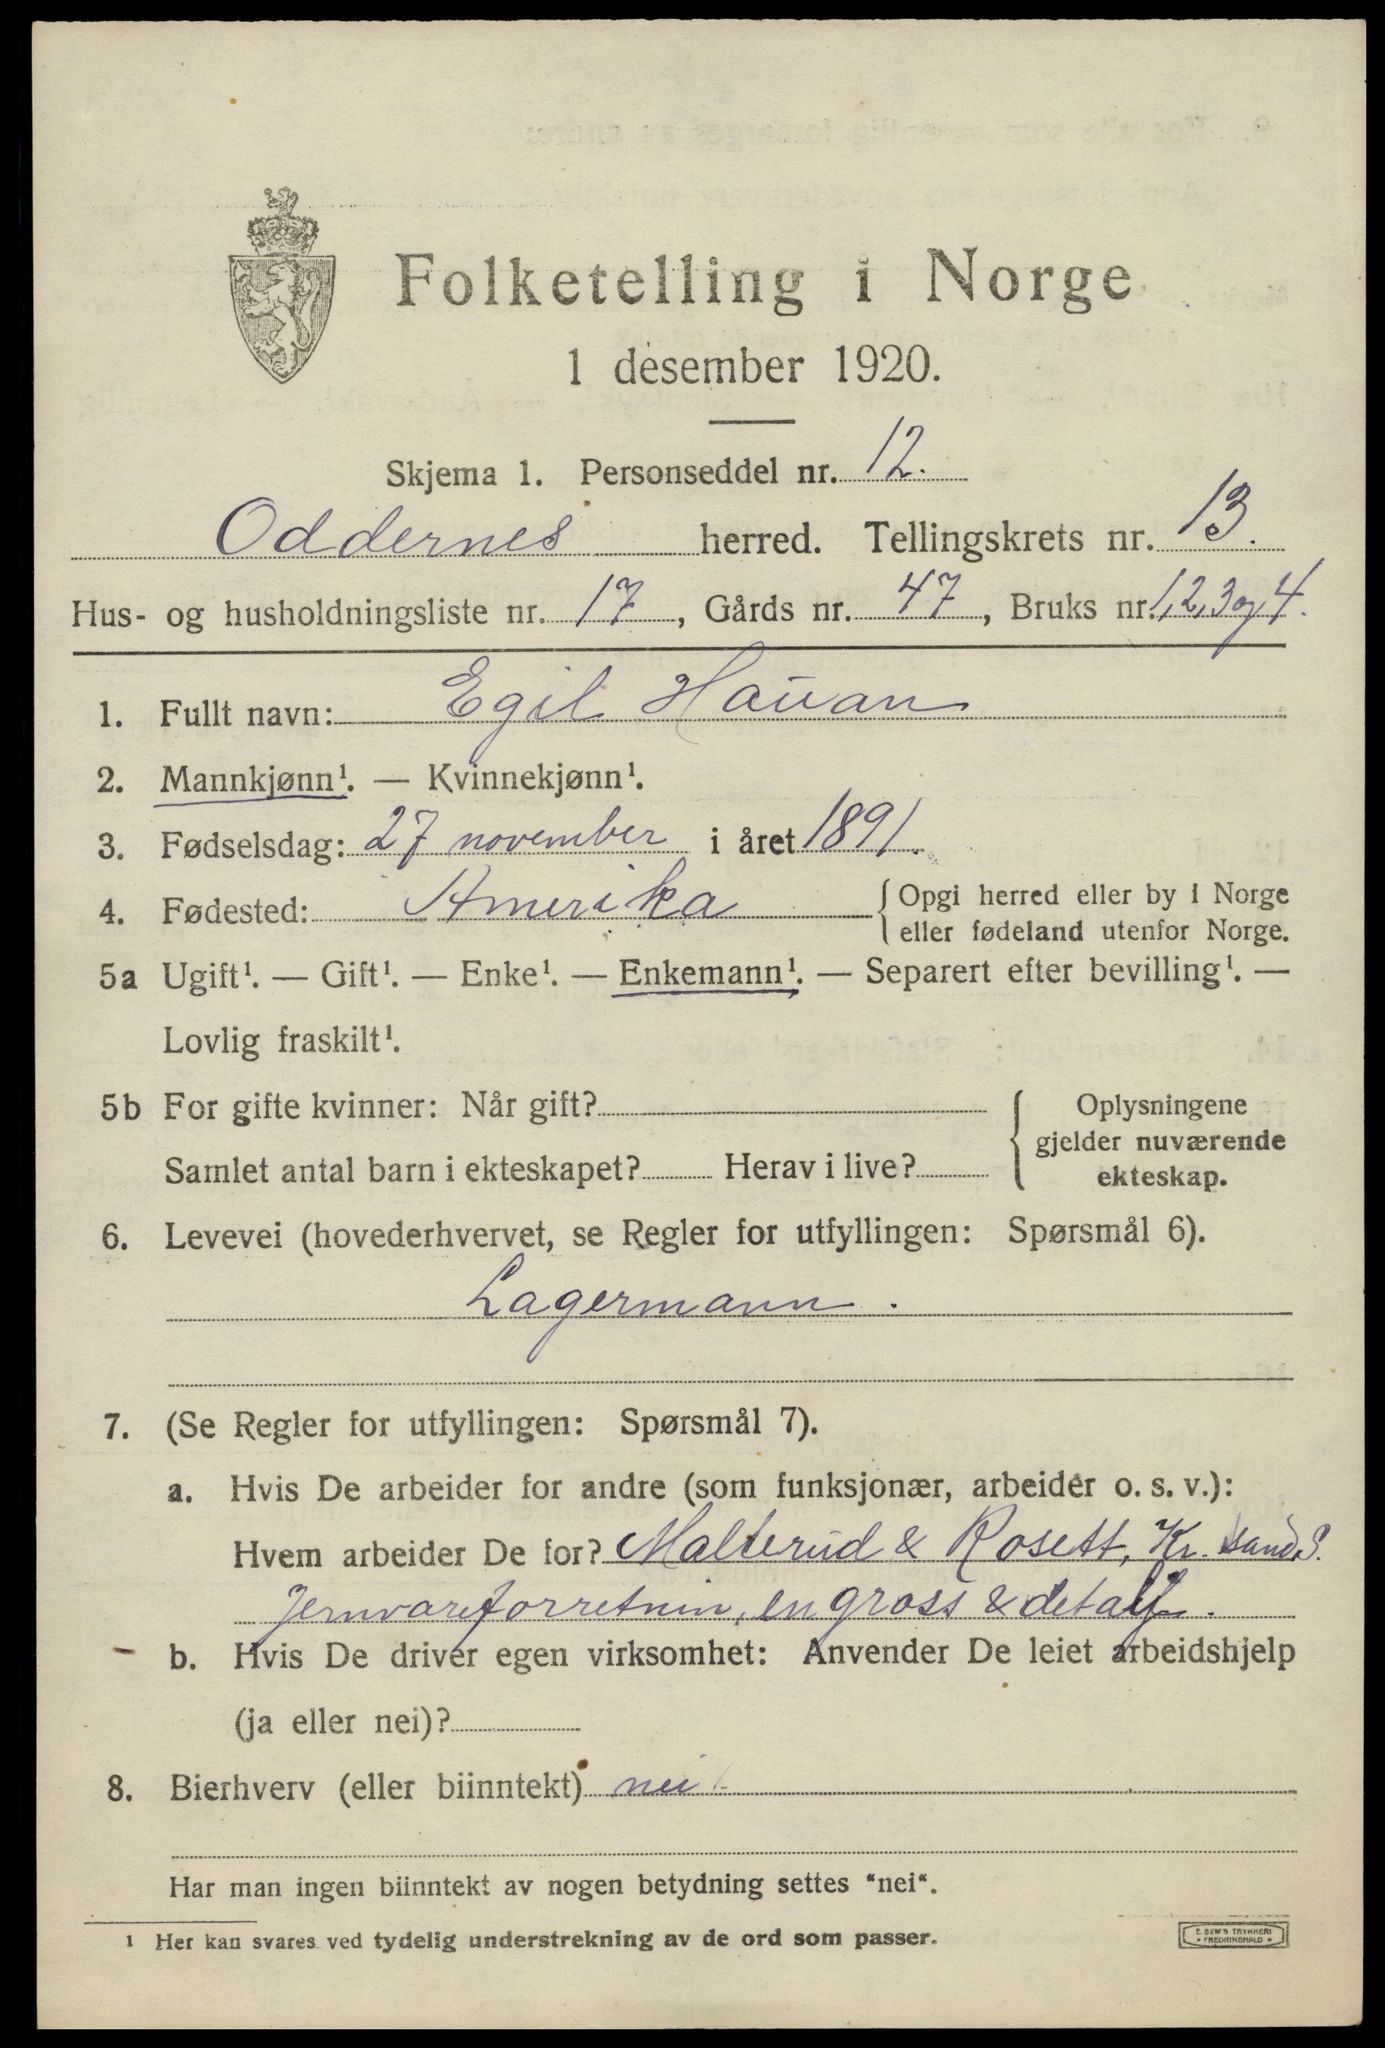 Folketelling i Norge
1 desember 1920.
Skjema 1. Personseddel nr. 12.
Oddernes herred. Tellingskrets nr. 13.
Hus- og husholdningsliste nr. 17, Gårds nr. 47, Bruks nr. 1, 2, 3 og 4.
1. Fullt navn: Egil Hauan
2. Mannkjønn¹. — Kvinnekjønn¹.
3. Fødselsdag: 27 november i året 1891.
4. Fødested: Amerika { Opgi herred eller by i Norge
eller fødeland utenfor Norge.
5a Ugift¹. — Gift¹. — Enke¹. — Enkemann¹. — Separert efter bevilling¹. —
Lovlig fraskilt¹.
5b For gifte kvinner: Når gift? { Oplysningene
gjelder nuværende
Samlet antal barn i ekteskapet? Herav i live? ekteskap.
6. Levevei (hovederhvervet, se Regler for utfyllingen: Spørsmål 6).
Lagermann.
7. (Se Regler for utfyllingen: Spørsmål 7).
a. Hvis De arbeider for andre (som funksjonær, arbeider o. s. v.):
Hvem arbeider De for? Malterud & Rosett, Kr. sand S.
Jernvareforretnin, en gross & detalj.
b. Hvis De driver egen virksomhet: Anvender De leiet arbeidshjelp
(ja eller nei)?
8. Bierhverv (eller biinntekt) nei
Har man ingen biinntekt av nogen betydning settes "nei".
¹ Her kan svares ved tydelig understrekning av de ord som passer.
E. SEM'S TRYKKERI
• FREDRIKSHALD •